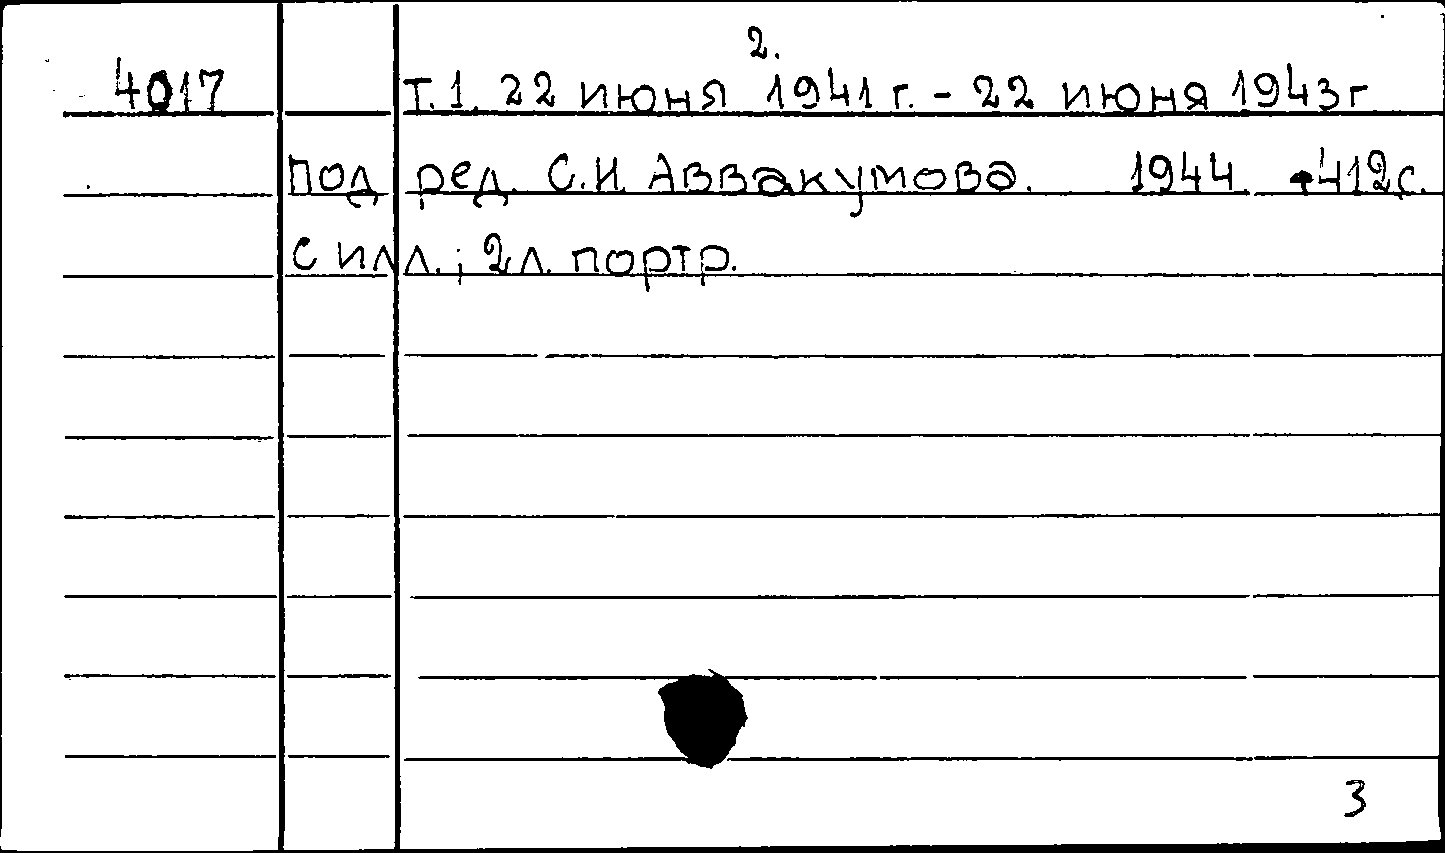 2.
4017 Т.1. 22 июня 1941 г. - 22 июня 1943 г
под ред. С.И. Аввакумова. 1944 412 с.
с илл.; 2 л. портр.
3